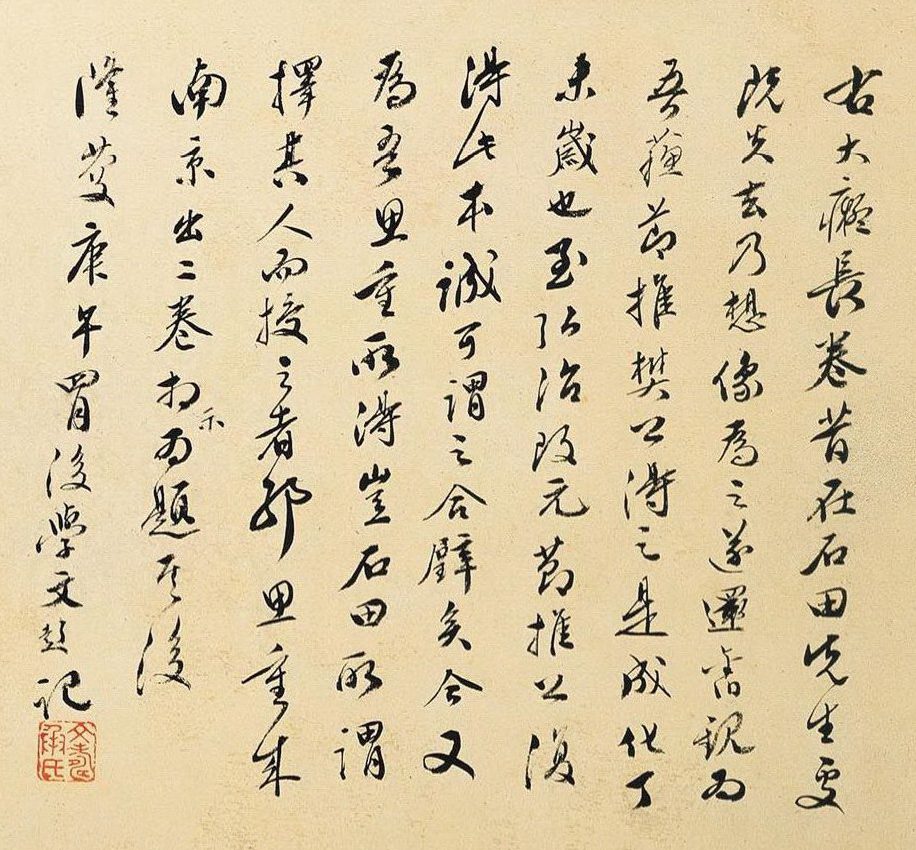 右大癡長卷昔在石田先生處
既失去乃想像為之遂還舊觀為
吾蘇節推樊公得之是成化丁
未歲也至弘治改元節推公復
得此本誠可謂之合璧矣今又
為吾思重所得豈石田所謂
擇其人而授之者邪思重來
南京出二卷相示為題其後
隆慶庚午四月後學文彭記
文壽承氏